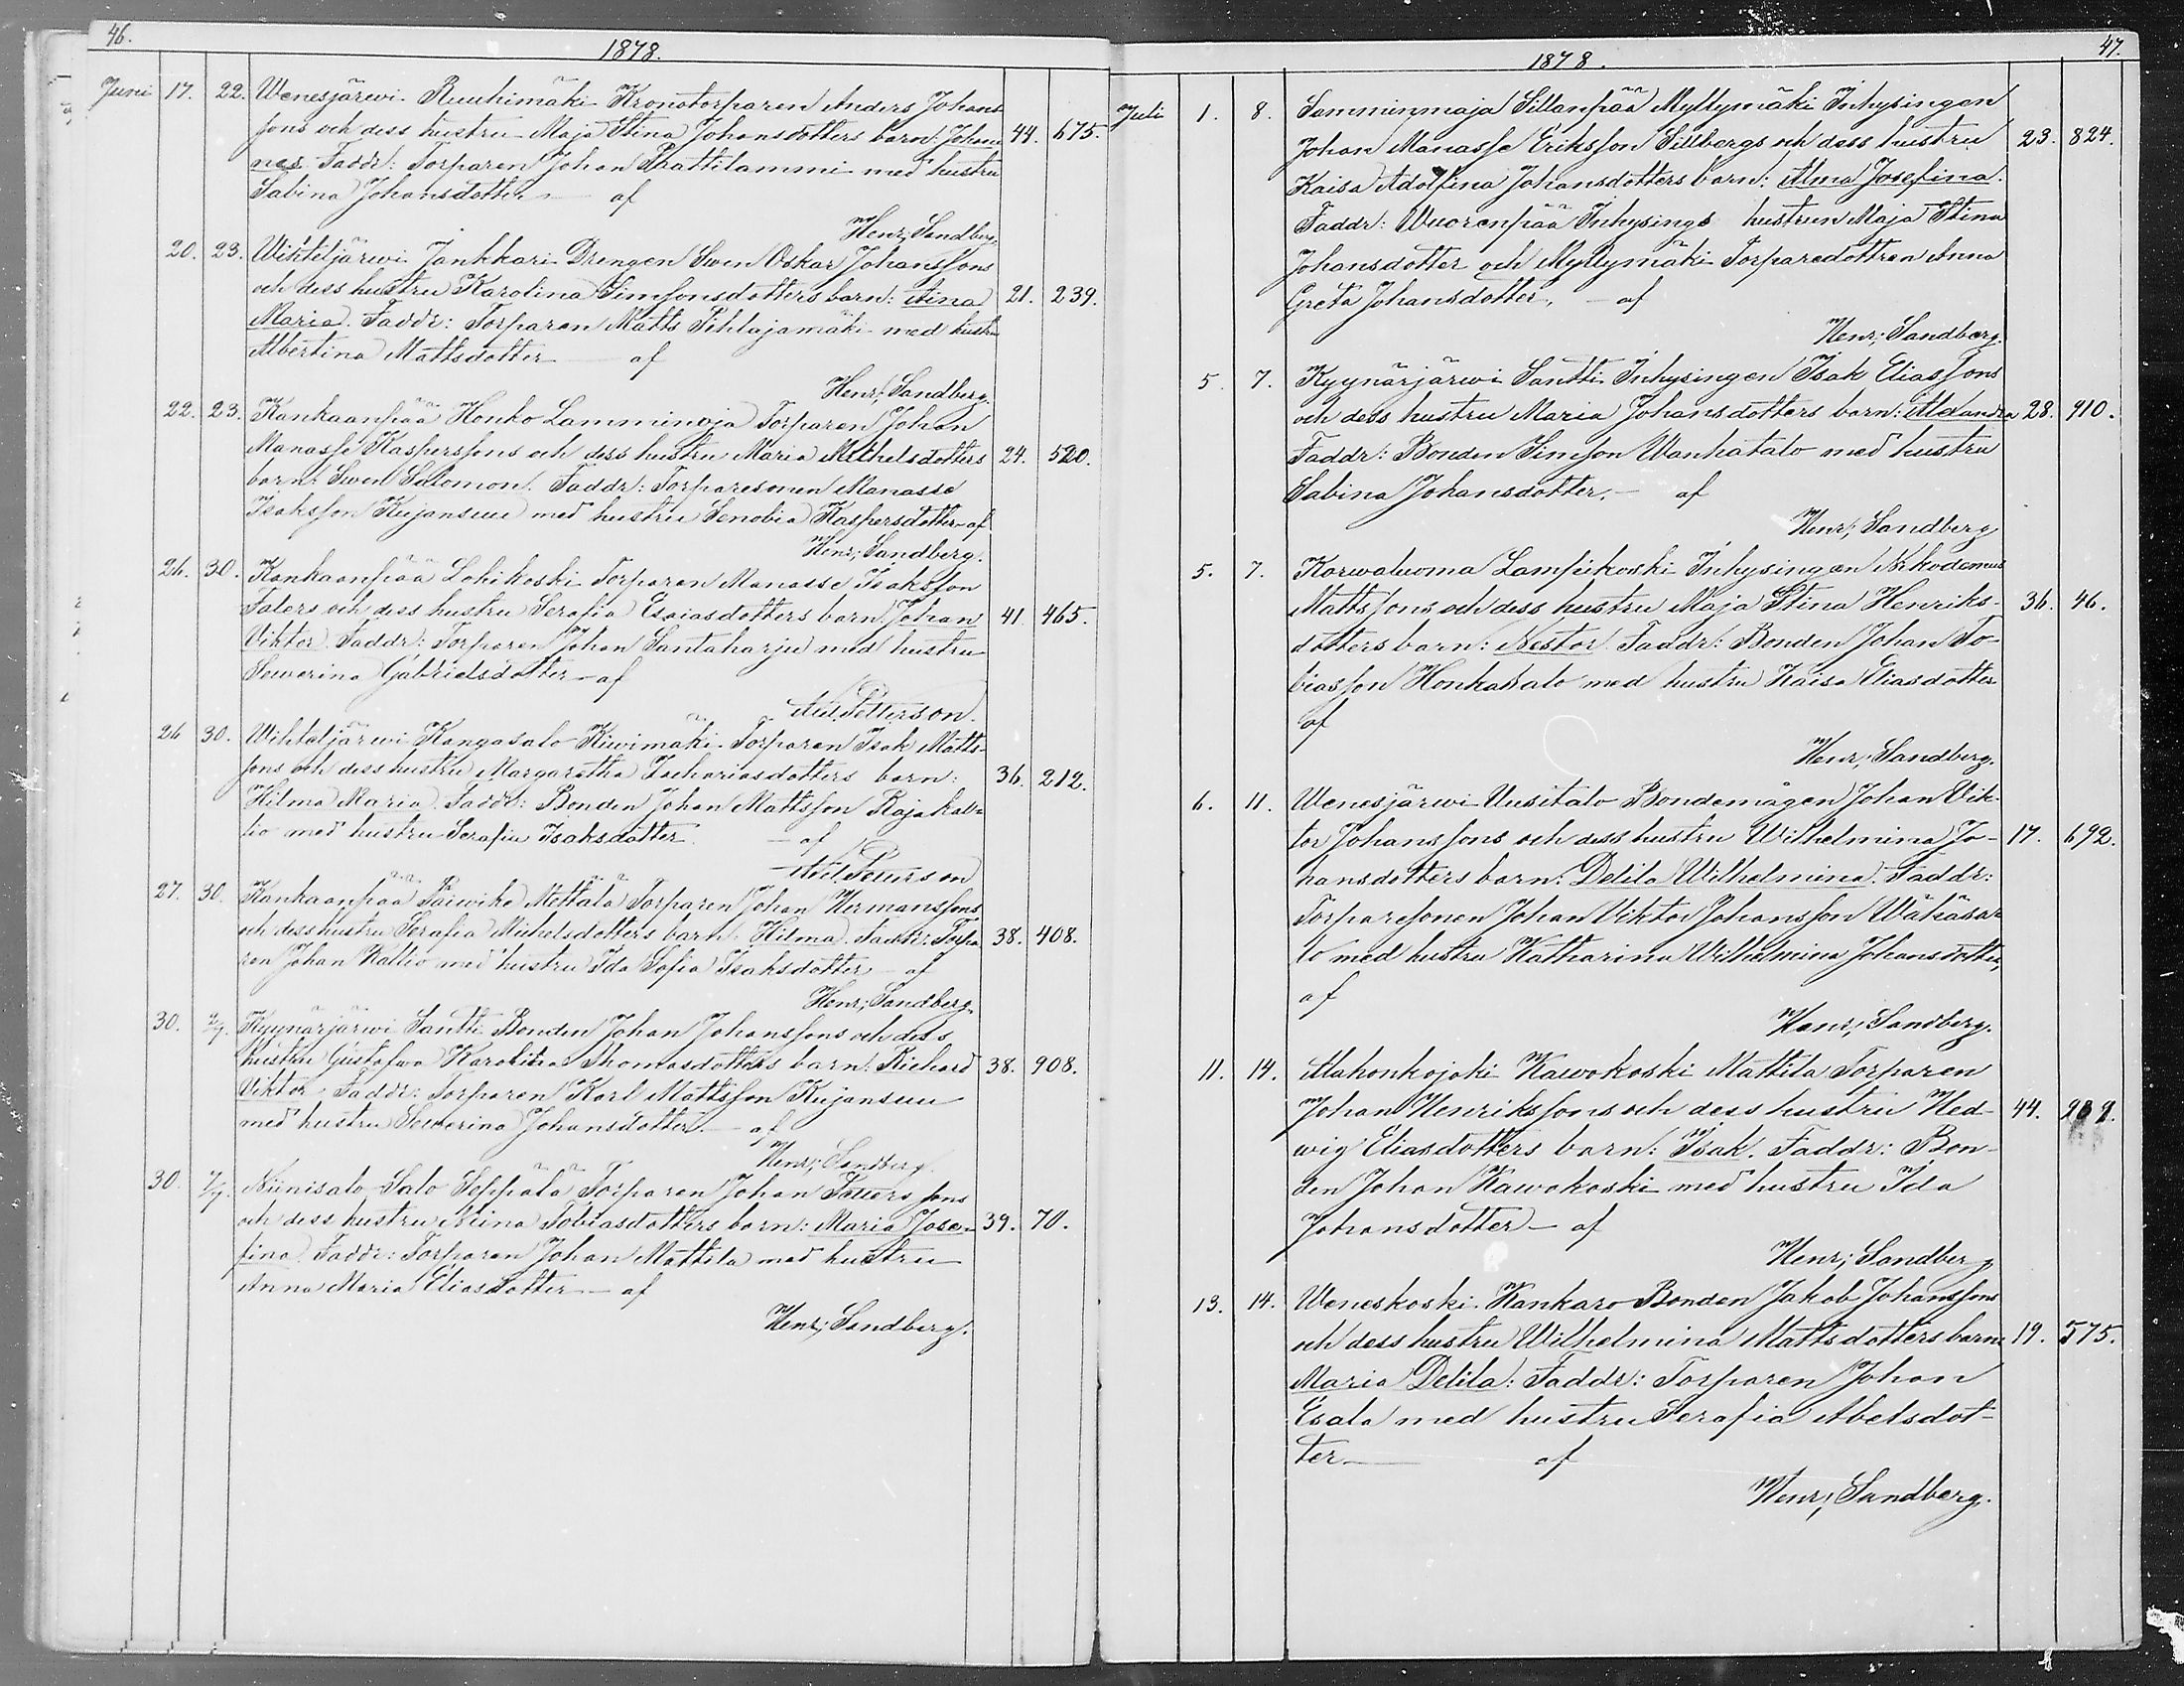 46.
1878.
Juni 17. 22. Wenesjärwi Ruuhimäki Kronotorparen Anders Johans
sons och dess hustru Maja Stina Johansdotters barn: Johan 44. 675.
nes Faddr: Torparen Johan Raattilammi med hustru
Sabina Johansdotter af
Henr; Sandberg.
20. 23. Wihteljärwi Jankkari Drengen Swen Oskar Johanssons
och dess hustru Karolina Simsonsdotters barn: Aina 21. 239.
Maria. Faddr: Torparen Matts Pihlajamäki med hustru
Albertina Mattsdotter af
Henr; Sandberg.
22. 23. Kankaanpää Honko Lamminoja Torparen Johan
Manasse Kasperssons och dess hustru Maria Michelsdotters 24. 520.
barn: Swen Salomon. Faddr: Torparesonen Manasse
Isaksson Kujansuu med hustru Senobia Kaspersdotter af
Henr; Sandberg.
26. 30. Kankaanpää Lohikoski Torparen Manasse Isaksson
Talers och dess hustru Serafia Esaiasdotters barn: Johan 41. 465.
Viktor. Faddr: Torparen Johan Santaharju med hustru
Sewerina Gabrielsdotter af
Ad. Petterson.
26 30. Wihteljärwi Kangasalo Kiwimäki Torparen Isak Matts-
sons och dess hustru Margaretha Zachariasdotters barn: 36. 212.
Hilma Maria. Faddr: Bonden Johan Mattsson Rajakal-
lio med hustru Serafia Isaksdotter. af
Ad. Petterson
27. 30. Kankaanpää Päiwike Mettälä Torparen Johan Hermanssons
och dess hustru Serafia Michelsdotters barn: Hilma. Faddr: Torpa 38. 408.
ren Johan Kallio med hustru Ida Sofia Isaksdotter af
Henr; Sandberg.
30. 2/7. Kyynärjärwi Santti Bonden Johan Johanssons och dess
hustru Gustafwa Karolina Thomasdotters barn: Richard 38. 908.
Viktor Faddr: Torparen Karl Mattsson Kujansuu
med hustru Sewerina Johansdotter. af
Henr; Sandberg.
30. 7/7. Niinisalo Salo Seppälä Torparen Johan sons
och dess hustru Miina Tobiasdotters barn: Maria Jose- 39. 70.
fina. Faddr: Torparen Johan Mattila med hustru
Anna Maria Eliasdotter af
Henr; Sandberg.
47.
1878.
Juli 1. 8. Samminmaja Sillanpää Myllymäki Inhysingen
Johan Manasse Eriksson Sillbergs och dess hustru 23. 824.
Kaisa Adolfina Johansdotters barn: Alma Josefina.
Faddr: Wuorenpää Inhysings hustrun Maja Stina
Johansdotter och Myllymäki Torparedottren Anna
Greta Johansdotter, af
Henr; Sandberg.
5. 7. Kyynärjärwi Santti Inhysingen Isak Eliassons
och dess hustru Maria Johansdotters barn: Aldandra 28. 910.
Faddr: Bonden Simson Wanhatalo med hustru
Sabina Johansdotter. af
Henr; Sandberg
5. 7. Korwaluoma Lampikoski Inhysingen Nikodemus
Mattssons och dess hustru Maja Stina Henriks- 36. 46.
dotters barn: Nestor Faddr: Bonden Johan To-
biasson Honkasalo med hustru Kaisa Eliasdotter
af
Henr; Sandberg.
6. 11. Wenesjärwi Uusitalo Bondemågen Johan Vik-
tor Johanssons och dess hustru Wilhelmina Jo- 17. 692.
hansdotters barn: Delila Wilhelmina. Faddr:
Torparesonen Johan Viktor Johansson Wähäsa-
lo med hustru Katharina Wilhelmina Johansdotter,
af
Henr; Sandberg.
11. 14. Alahonkojoki Kawokoski Mattila Torparen
Johan Henrikssons och dess hustru Hed- 44. 282.
wig Eliasdotters barn: Isak. Faddr: Bon-
den Johan Kawokoski med hustru Ida
Johansdotter af
Henr; Sandberg
13. 14. Weneskoski Kankaro Bonden Jakob Johanssons
och dess hustru Wilhelmina Mattsdotters barn 19. 575.
Maria Delila: Faddr: Torparen Johan
Esala med hustru Serafia Abelsdot-
ter af
Henr; Sandberg.